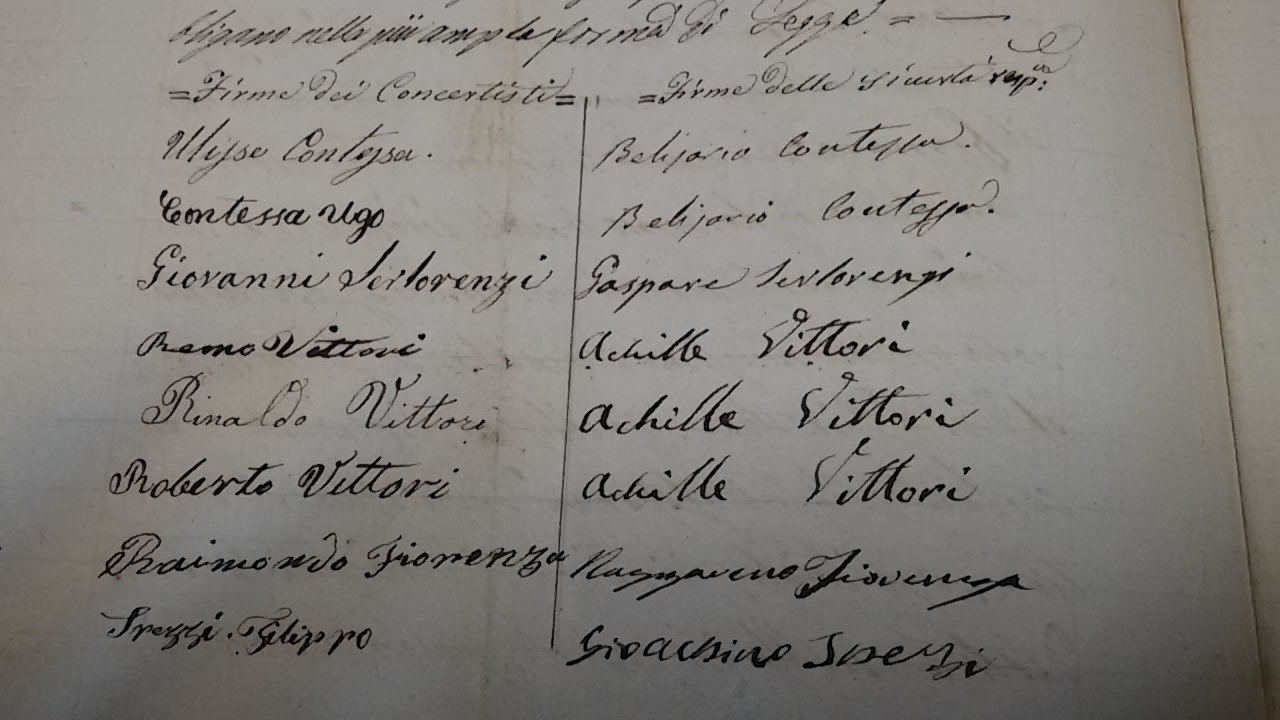 bligano nella più ampla forma di Legge. = —
=Firme dei Concertisti= =Firme delle Sicurtà resp.ve
Ulisse Contessa. Belisario Contessa.
Contessa Ugo Belisario Contessa.
Giovanni Serlorenzi Gaspare Serlorenzi
Remo Vittori Achille Vittori
Rinaldo Vittori Achille Vittori
Roberto Vittori Achille Vittori
Raimondo Fiorenza Fiorenza
Srezzi. Filippo Gioachino Srezzi